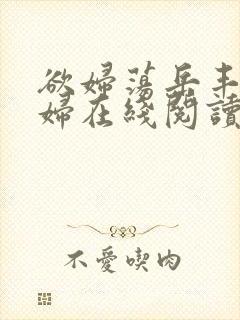 欲婦蕩岳丰
婦在綫閱讀
不愛喫肉